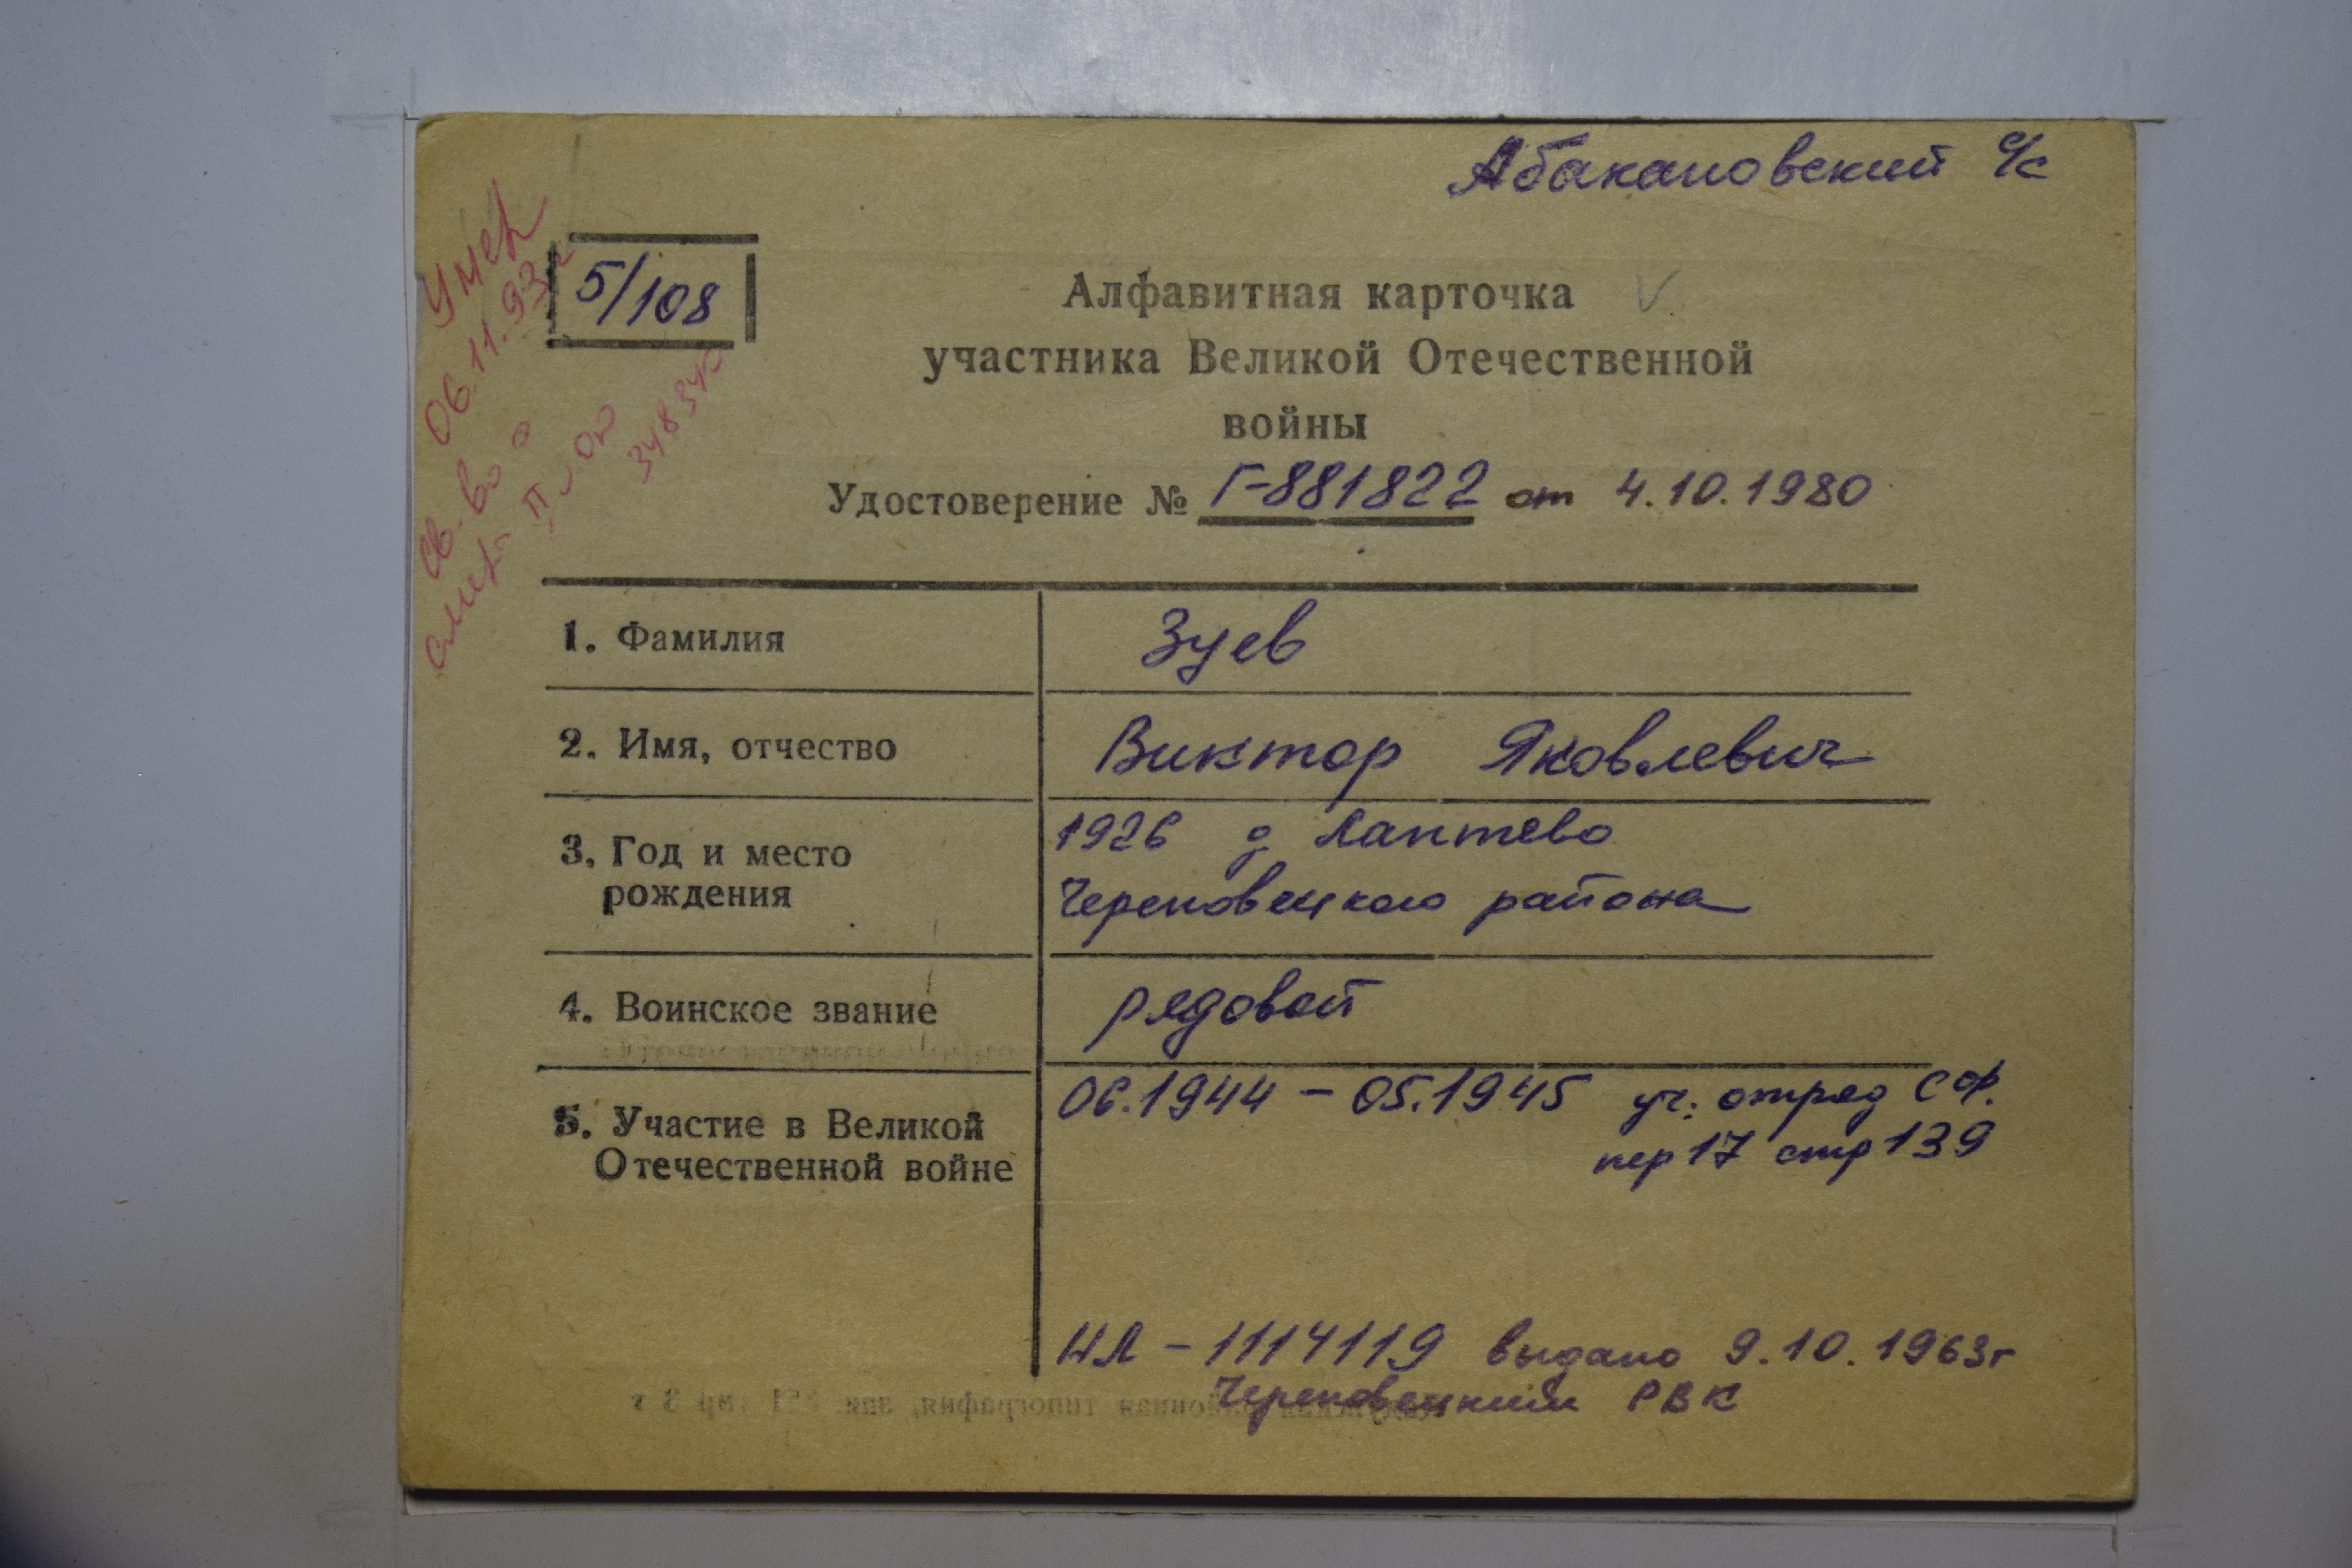 Абакановский с/с
Умер
06.11.93г
св-во о
смерт. II-ОЮ
348340
5/108
Алфавитная карточка
участника Великой Отечественной
войны
Удостоверение № Г-881822 от 4.10.1980
1. Фамилия
Зуев
2. Имя, отчество
Виктор Яковлевич
3. Год и место
рождения
1926 д Лаптево
Череповецкого района
4. Воинское звание
рядовой
5. Участие в Великой
Отечественной войне
06.1944 - 05.1945 уч. отряд СФ.
пер 17 стр 139
НЛ - 1114119 выдано 9.10.1963г
Череповецким РВК